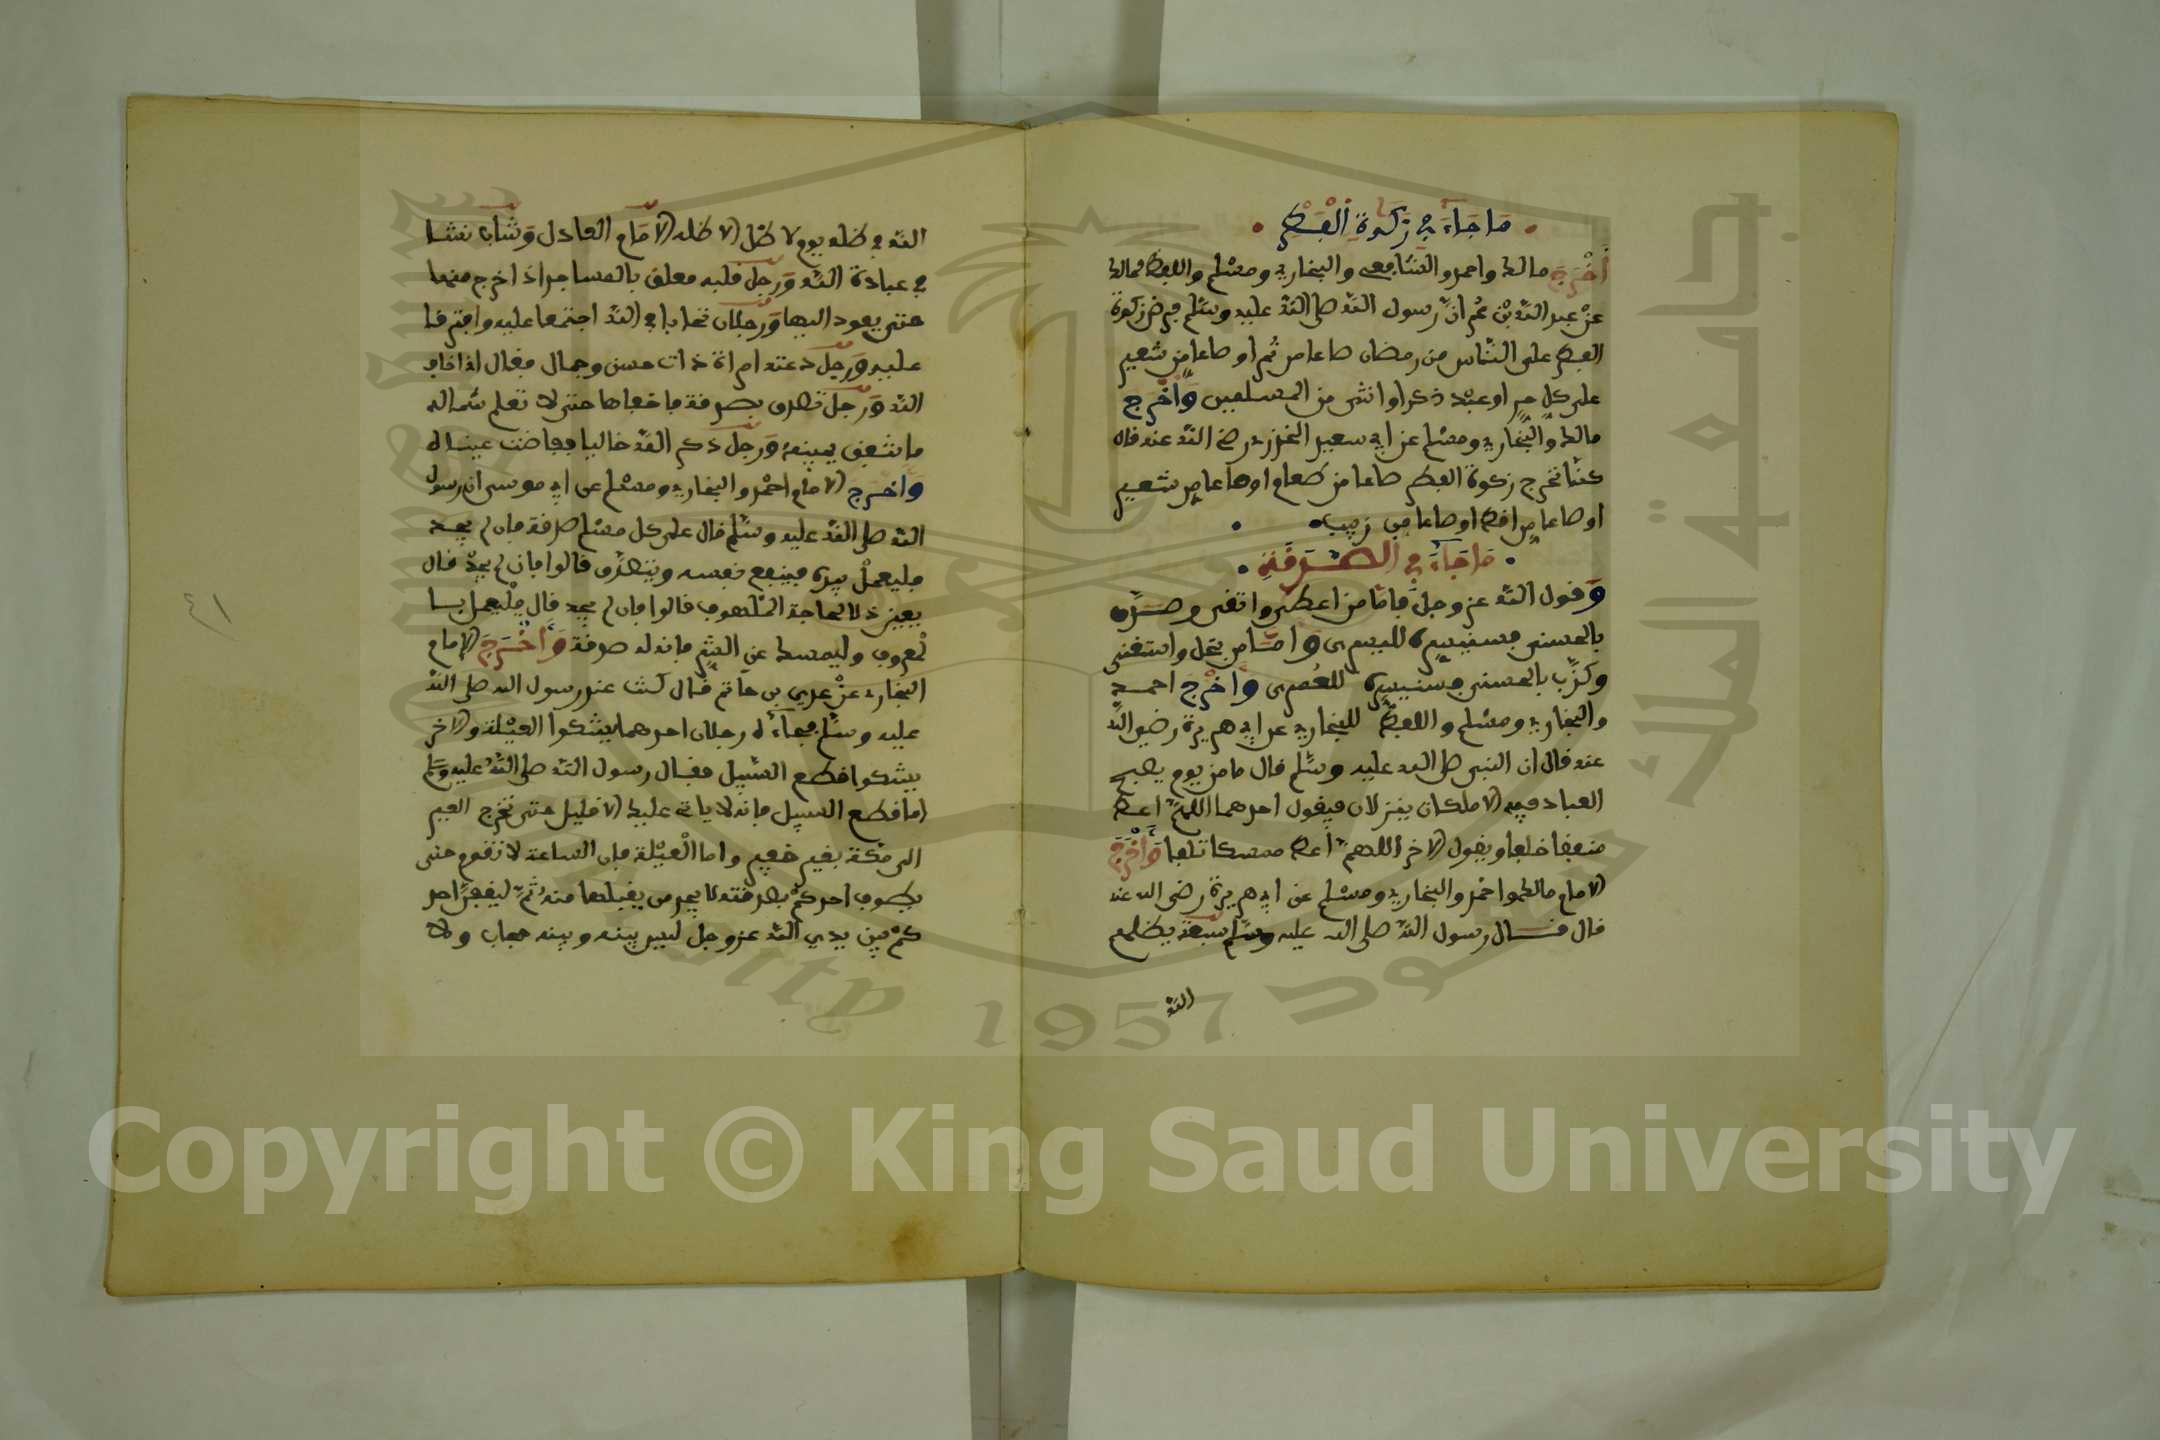 ما جاء في زكوة الفطر
أخرج مالك واحمد والشافعي والبخاري ومسلم واللفظ لمالك
عن عبد الله بن عمر ان رسول الله صلى الله عليه وسلم فرض زكوة
الفطر على الناس من رمضان صاعا من تمر او صاعا من شعير
على كل حر او عبد ذكر او انثى من المسلمين وأخرج
مالك والبخاري ومسلم عن ابي سعيد الخدري رضي الله عنه قال
كنا نخرج زكوة الفطر صاعا من طعام او صاعا من شعير
او صاعا من اقط او صاعا من زبيب
ما جاء في الصدقة
وقول الله عز وجل فاما من اعطى واتقى وصدق
بالحسنى فسنيسره لليسرى واما من بخل واستغنى
وكذب بالحسنى فسنيسره للعسرى وأخرج احمد
والبخاري ومسلم واللفظ للبخاري عن ابي هريرة رضي الله
عنه قال ان النبي صلى الله عليه وسلم قال ما من يوم يصبح
العباد فيه الا ملكان ينزلان فيقول احدهما اللهم اعط
منفقا خلفا ويقول الاخر اللهم أعط ممسكا تلفا وأخرج
الامام مالك واحمد والبخاري ومسلم عن ابي هريرة رضي الله عنه
قال قال رسول الله صلى الله عليه وسلم سبعة يظلهم
الله
الله في ظله يوم لا ظل الا ظله الامام العادل وشاب نشا
في عبادة الله ورجل قلبه معلق بالمساجد اذا خرج منها
حتى يعود اليها ورجلان تحابا في الله اجتمعا عليه وافترقا
عليه ورجل دعته امراة ذات حسن وجمال فقال اني اخاف
الله ورجل تصدق بصدقة فاخفاها حتى لا تعلم شماله
ما تنفق يمينه ورجل ذكر الله خاليا ففاضت عيناه
وأخرج الامام احمد والبخاري ومسلم عن ابي موسى ان رسول
الله صلى الله عليه وسلم قال على كل مسلم صدقة فان لم يجد
فليعمل بيده فينفع نفسه ويتصدق قالوا فان لم يجد قال
يعين ذا الحاجة الملهوف قالوا فان لم يجد قال فليعمل بالـ
معروف وليمسك عن الشر فانه له صدقة وأخرج الامام
البخاري عن عدي بن حاتم قال كنت عند رسول الله صلى الله
عليه وسلم فجاءه رجلان احدهما يشكوا العيلة والاخر
يشكوا قطع السبيل فقال رسول الله صلى الله عليه وسلم
اما قطع السبيل فانه لا ياتي عليك الا قليل حتى تخرج العير
الى مكة بغير خفير واما العيلة فان الساعة لا تقوم حتى
يطوف احدكم بصدقته لا يجد من يقبلها منه ثم ليقفن احد
كم بين يدي الله عز وجل ليس بينه وبينه حجاب ولا
٤١
جامعة الملك سعود
1957
Copyright © King Saud University